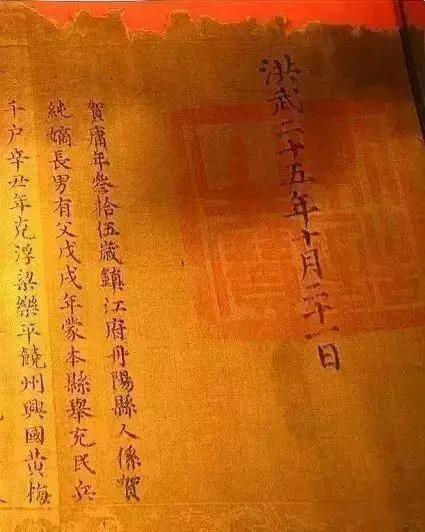 洪武二十五年十月二十一日
賀庸年叁拾伍歲鎮江府丹陽縣人係賀
純嫡長男有父戊戌年蒙本縣舉充民兵
千户辛丑年克浮梁樂平饒州興國黄梅